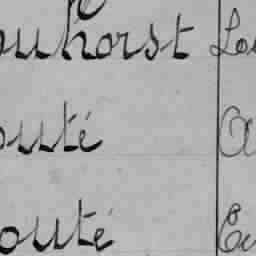 ouhorst Lou
outé A
outé Eu